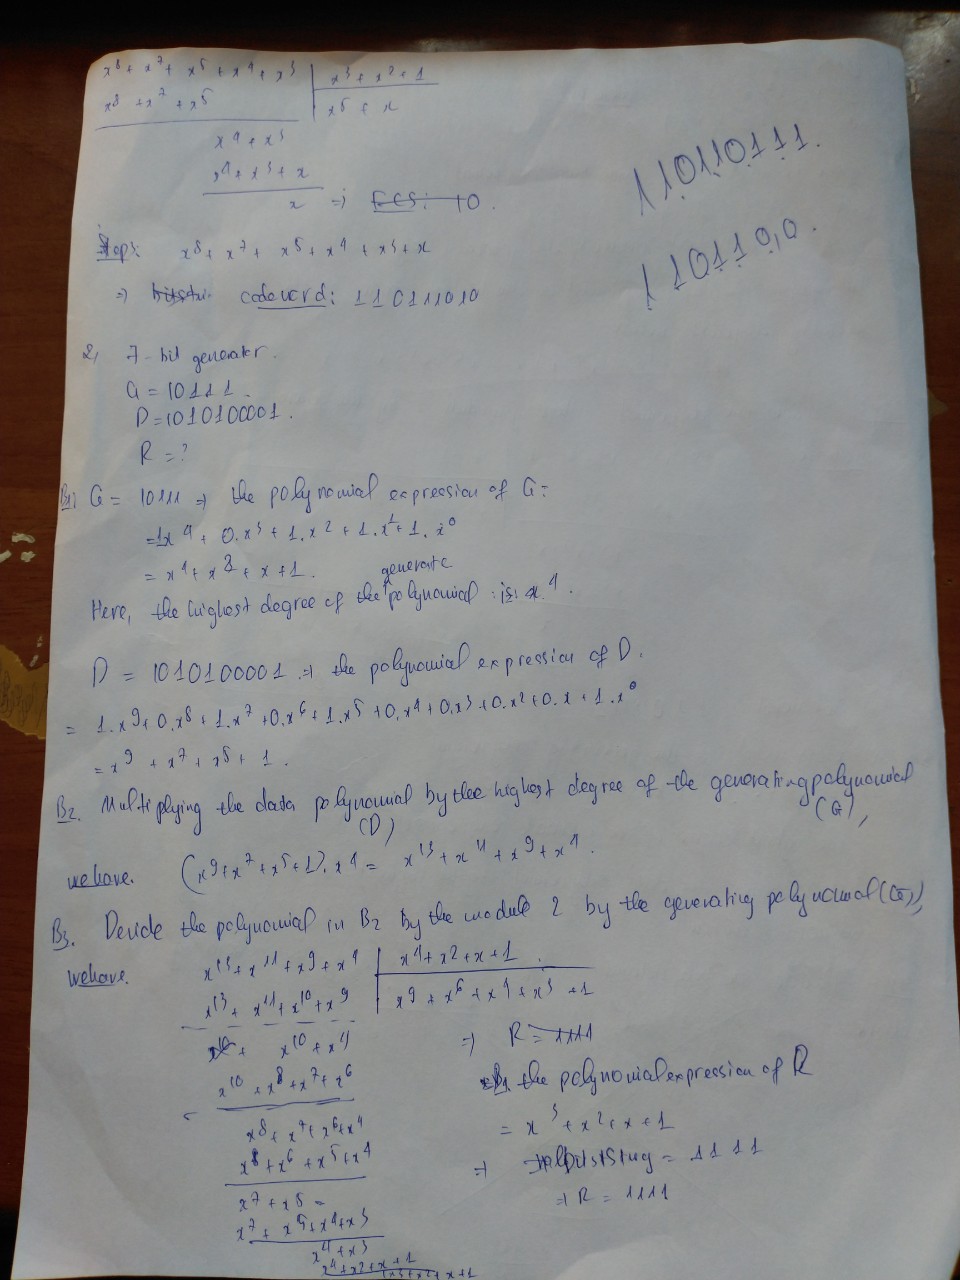 x⁸ + x⁷ + x⁵ + x⁴ + x³ | x³ + x² + 1
x⁸ + x⁷ + x⁵ | x⁵ + x
x⁴ + x³
x⁴ + x³ + x
x => FCS: 10.
110110111.
110110,0.
x⁸ + x⁷ + x⁵ + x⁴ + x³ + x
=> codeword: 110111010
2, 7-bit generator.
G = 10111.
D = 1010100001.
R = ?
B1) G = 10111 => the polynomial expression of G:
= 1x⁴ + 0.x³ + 1.x² + 1.x¹ + 1.x⁰
= x⁴ + x² + x + 1. generate
Here, the highest degree of the polynomial is: x⁴.
D = 1010100001 => the polynomial expression of D.
= 1.x⁹ + 0.x⁸ + 1.x⁷ + 0.x⁶ + 1.x⁵ + 0.x⁴ + 0.x³ + 0.x² + 0.x + 1.x⁰
= x⁹ + x⁷ + x⁵ + 1.
B2. Multiplying the data polynomial by the highest degree of the generating polynomial
(D) (G),
we have. (x⁹ + x⁷ + x⁵ + 1).x⁴ = x¹³ + x¹¹ + x⁹ + x⁴.
B3. Devide the polynomial in B2 by the module 2 by the generating polynomial (G),
we have. x¹³ + x¹¹ + x⁹ + x⁴ | x⁴ + x² + x + 1.
x¹³ + x¹¹ + x¹⁰ + x⁹ | x⁹ + x⁶ + x⁴ + x³ + 1
x¹⁰ + x⁴ => R = 1111
x¹⁰ + x⁸ + x⁷ + x⁶ the polynomial expression of R
x⁸ + x⁷ + x⁶ + x⁴ = x³ + x² + x + 1
x⁸ + x⁶ + x⁵ + x⁴ => = 1111
x⁷ + x⁵ => R = 1111
x⁷ + x⁵ + x⁴ + x³
x⁴ + x³
x⁴ + x² + x + 1
x³ + x² + x + 1